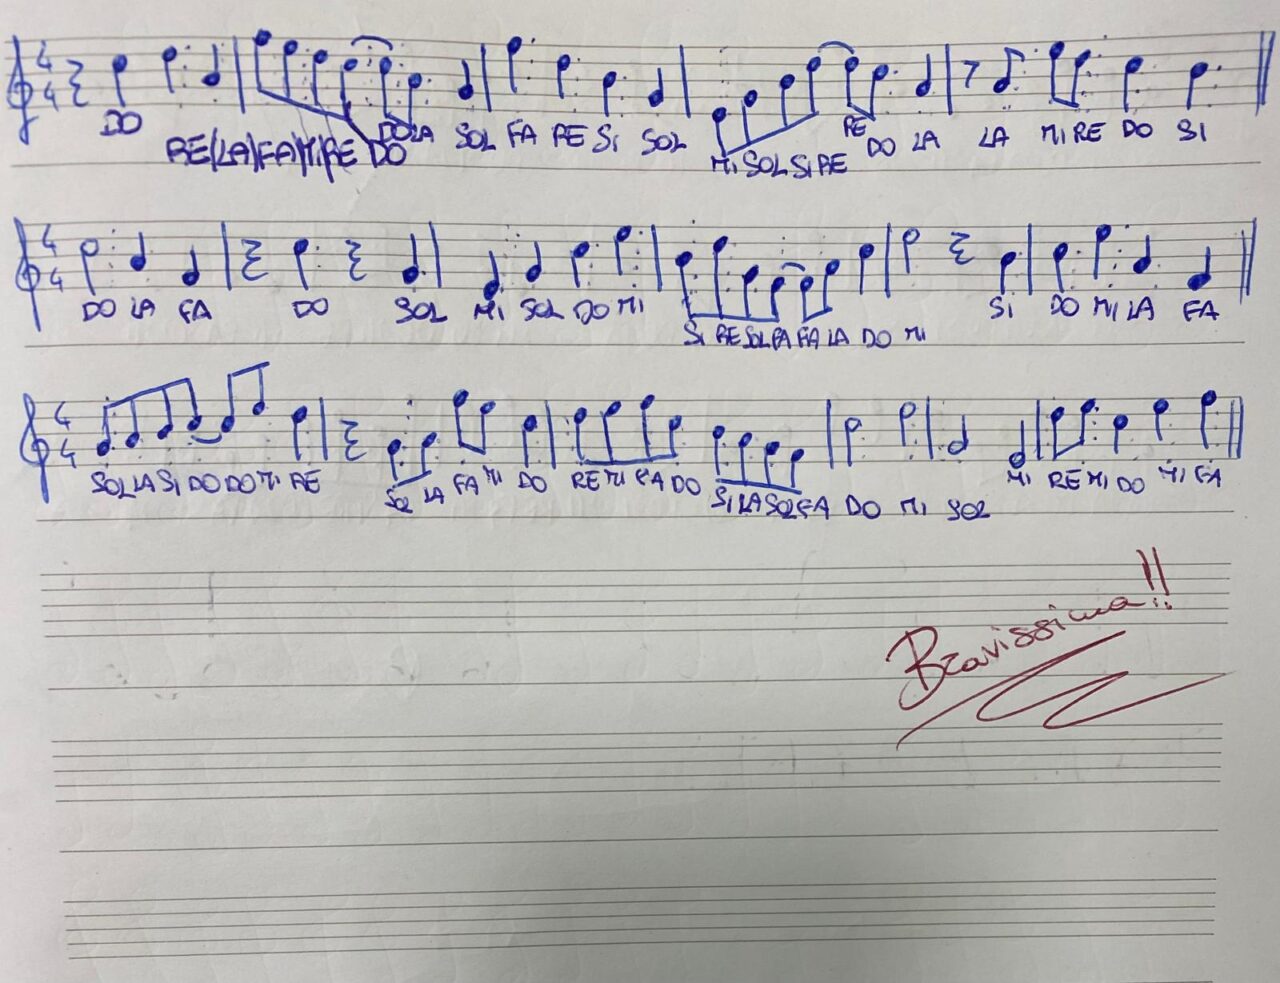 4 4 DO RE (LA) FA MI RE DO DO LA SOL FA RE SI SOL MI SOL SI RE RE DO LA LA MI RE DO SI
4 4 DO LA FA DO SOL MI SOL DO MI SI RE SOL FA FA LA DO MI SI DO MI LA FA
4 4 SOL LA SI DO DO MI RE SOL LA FA MI DO RE MI FA DO SI LA SOL FA DO MI SOL MI RE MI DO MI FA
Bravissima!!